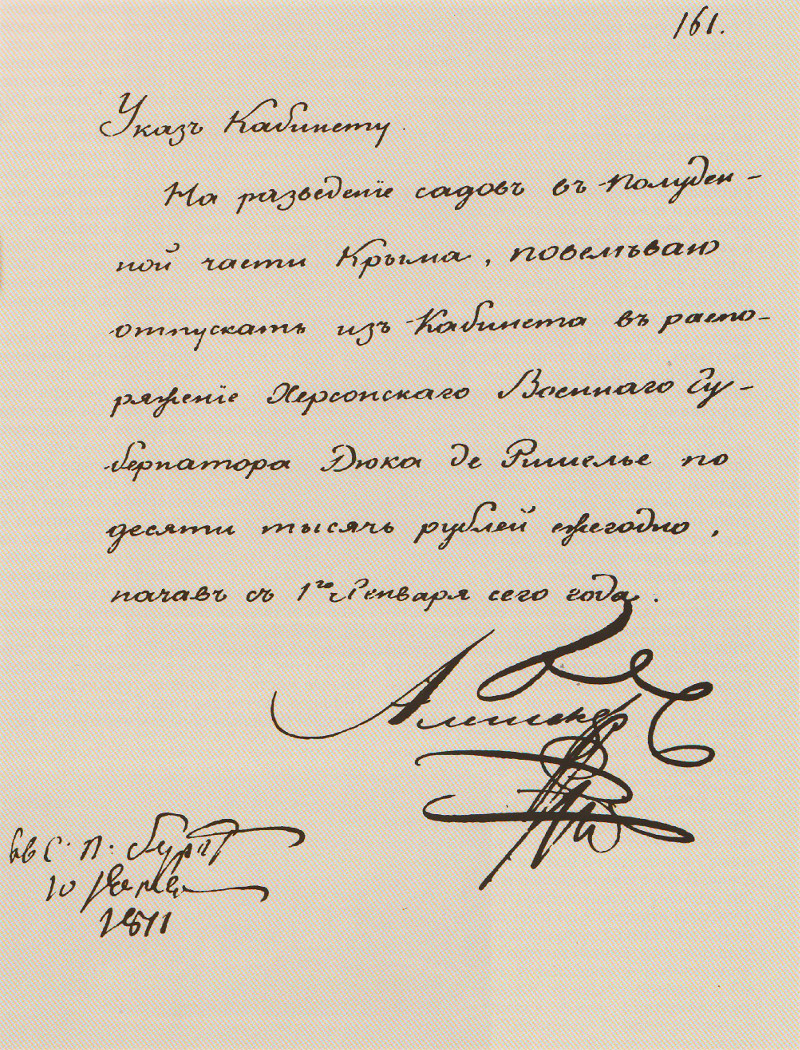 161.
Указъ Кабинету.
На разведенїе садовъ въ полуден-
ной части Крыма, повелѣваю
отпускать изъ Кабинета въ распо-
ряженїе Херсонскаго Военнаго Гу-
бернатора Дюка де Ришелье по
десяти тысячь рублей ежегодно,
начавъ съ 1го Генваря сего года.
Александръ
въ С. П. бург
10
1811